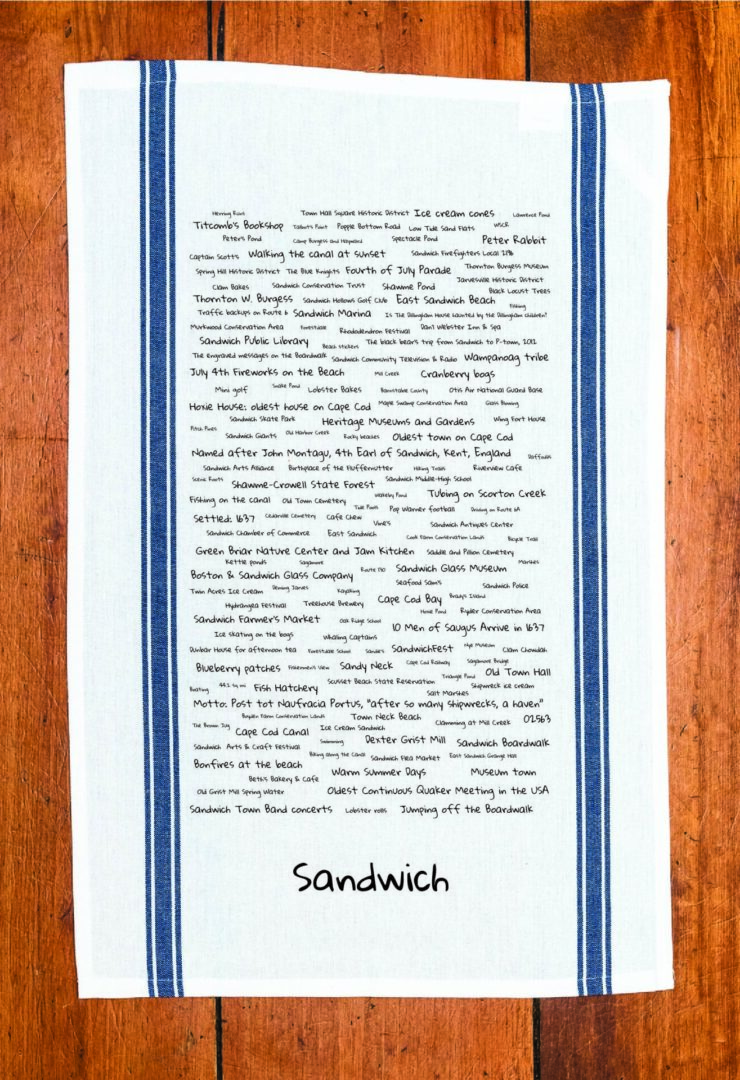 Herring Runs Town Hall Square Historic District Ice cream cones Lawrence Pond
Titcomb's Bookshop Talbot's Point Popple Bottom Road Low Tide Sand Flats WSCR
Peter's Pond Camp Burgess and Hayward Spectacle Pond Peter Rabbit
Captain Scott's Walking the canal at sunset Sandwich Firefighters Local 2196
Spring Hill Historic District The Blue Knights Fourth of July Parade Thornton Burgess Museum
Clam Bakes Sandwich Conservation Trust Shawme Pond Jarvesville Historic District
Black Locust Trees
Thornton W. Burgess Sandwich Hollows Golf Club East Sandwich Beach Fishing
Traffic backups on Route 6 Sandwich Marina Is The Dillingham House haunted by the Dillingham children?
Murkwood Conservation Area Forestdale Rhododendron Festival Dan'l Webster Inn & Spa
Sandwich Public Library Beach stickers The black bear's trip from Sandwich to P-town, 2012
The engraved messages on the Boardwalk Sandwich Community Television & Radio Wampanoag tribe
July 4th Fireworks on the Beach Mill Creek Cranberry bogs
Mini golf Snake Pond Lobster Bakes Barnstable County Otis Air National Guard Base
Hoxie House: oldest house on Cape Cod Maple Swamp Conservation Area Glass Blowing
Sandwich Skate Park Heritage Museums and Gardens Wing Fort House
Pitch Pines Sandwich Giants Old Harbor Creek Rocky beaches Oldest town on Cape Cod
Named after John Montagu, 4th Earl of Sandwich, Kent, England Daffodils
Sandwich Arts Alliance Birthplace of the Fluffernutter Hiking Trails Riverview Cafe
Scenic Roads Shawme-Crowell State Forest Sandwich Middle-High School
Fishing on the canal Old Town Cemetery Wakeby Pond Tubing on Scorton Creek
Tide Pools Pop Warner football Driving on Route 6A
Settled: 1637 Cedarville Cemetery Cafe Chew Vine's Sandwich Antiques Center
Sandwich Chamber of Commerce East Sandwich Cook Farm Conservation Lands Bicycle Trail
Green Briar Nature Center and Jam Kitchen Saddle and Pillion Cemetery
Kettle ponds Sagamore Route 130 Sandwich Glass Museum Marshes
Boston & Sandwich Glass Company Seafood Sam's Sandwich Police
Twin Acres Ice Cream Deming Jarves Kayaking Cape Cod Bay Brady's Island
Hydrangea Festival Treehouse Brewery Hoxie Pond Ryder Conservation Area
Sandwich Farmer's Market Oak Ridge School 10 Men of Saugus Arrive in 1637
Ice skating on the bogs Whaling Captains
Dunbar House for afternoon tea Forestdale School Sandie's SandwichFest Nye Museum Clam Chowdah
Blueberry patches Fishermen's View Sandy Neck Cape Cod Railway Sagamore Bridge
Old Town Hall
Boating 44.2 sq mi Fish Hatchery Scusset Beach State Reservation Triangle Pond Shipwreck ice cream
Salt Marshes
Motto: Post tot Naufracia Portus, "after so many shipwrecks, a haven"
Boyden Farm Conservation Lands Town Neck Beach Clamming at Mill Creek 02563
The Brown Jug Cape Cod Canal Ice Cream Sandwich
Sandwich Arts & Craft Festival Swimming Dexter Grist Mill Sandwich Boardwalk
Bonfires at the beach Biking along the Canal Sandwich Flea Market East Sandwich Grange Hall
Beth's Bakery & Cafe Warm Summer Days Museum town
Old Grist Mill Spring Water Oldest Continuous Quaker Meeting in the USA
Sandwich Town Band concerts Lobster rolls Jumping off the Boardwalk
Sandwich